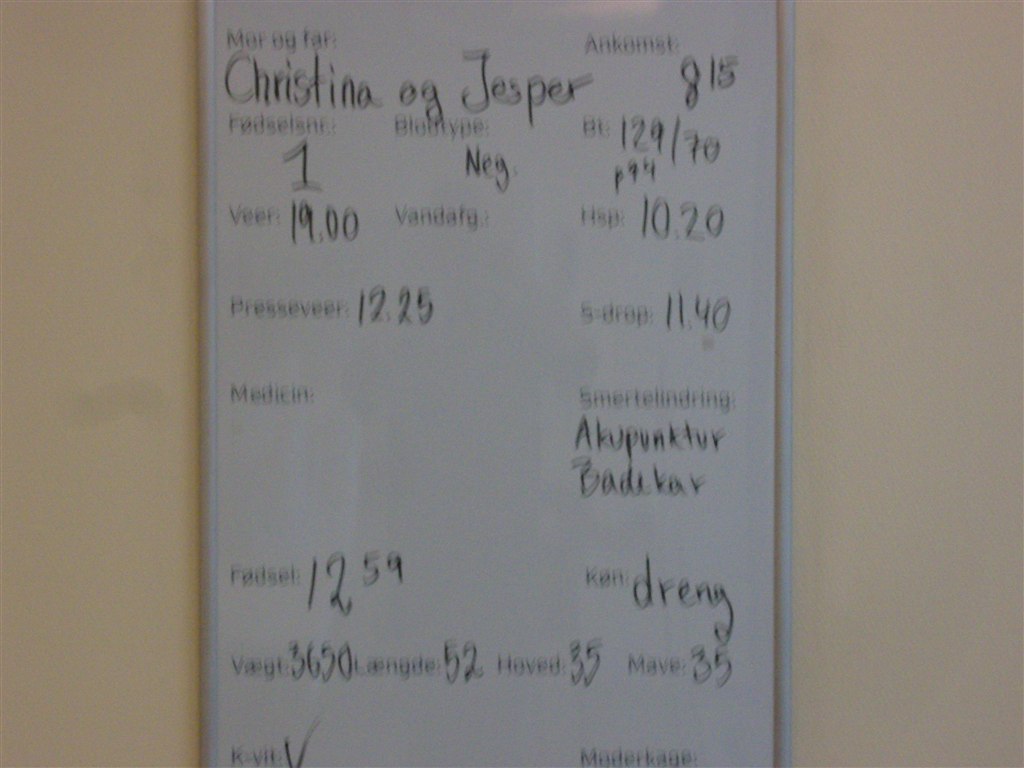 Mor og far: Ankomst:
Christina og Jesper 8 15
Fødselsnr.: Blodtype: Bt: 129/70
1 Neg. p94
Veer: 19.00 Vandafg.: Hsp: 10.20
Presseveer: 12.25 S-drop: 11.40
Medicin: Smertelindring:
Akupunktur
Badekar
Fødsel: 12 59 Køn: dreng
Vægt: 3650 Længde: 52 Hoved: 35 Mave: 35
K-vit: V Moderkage: